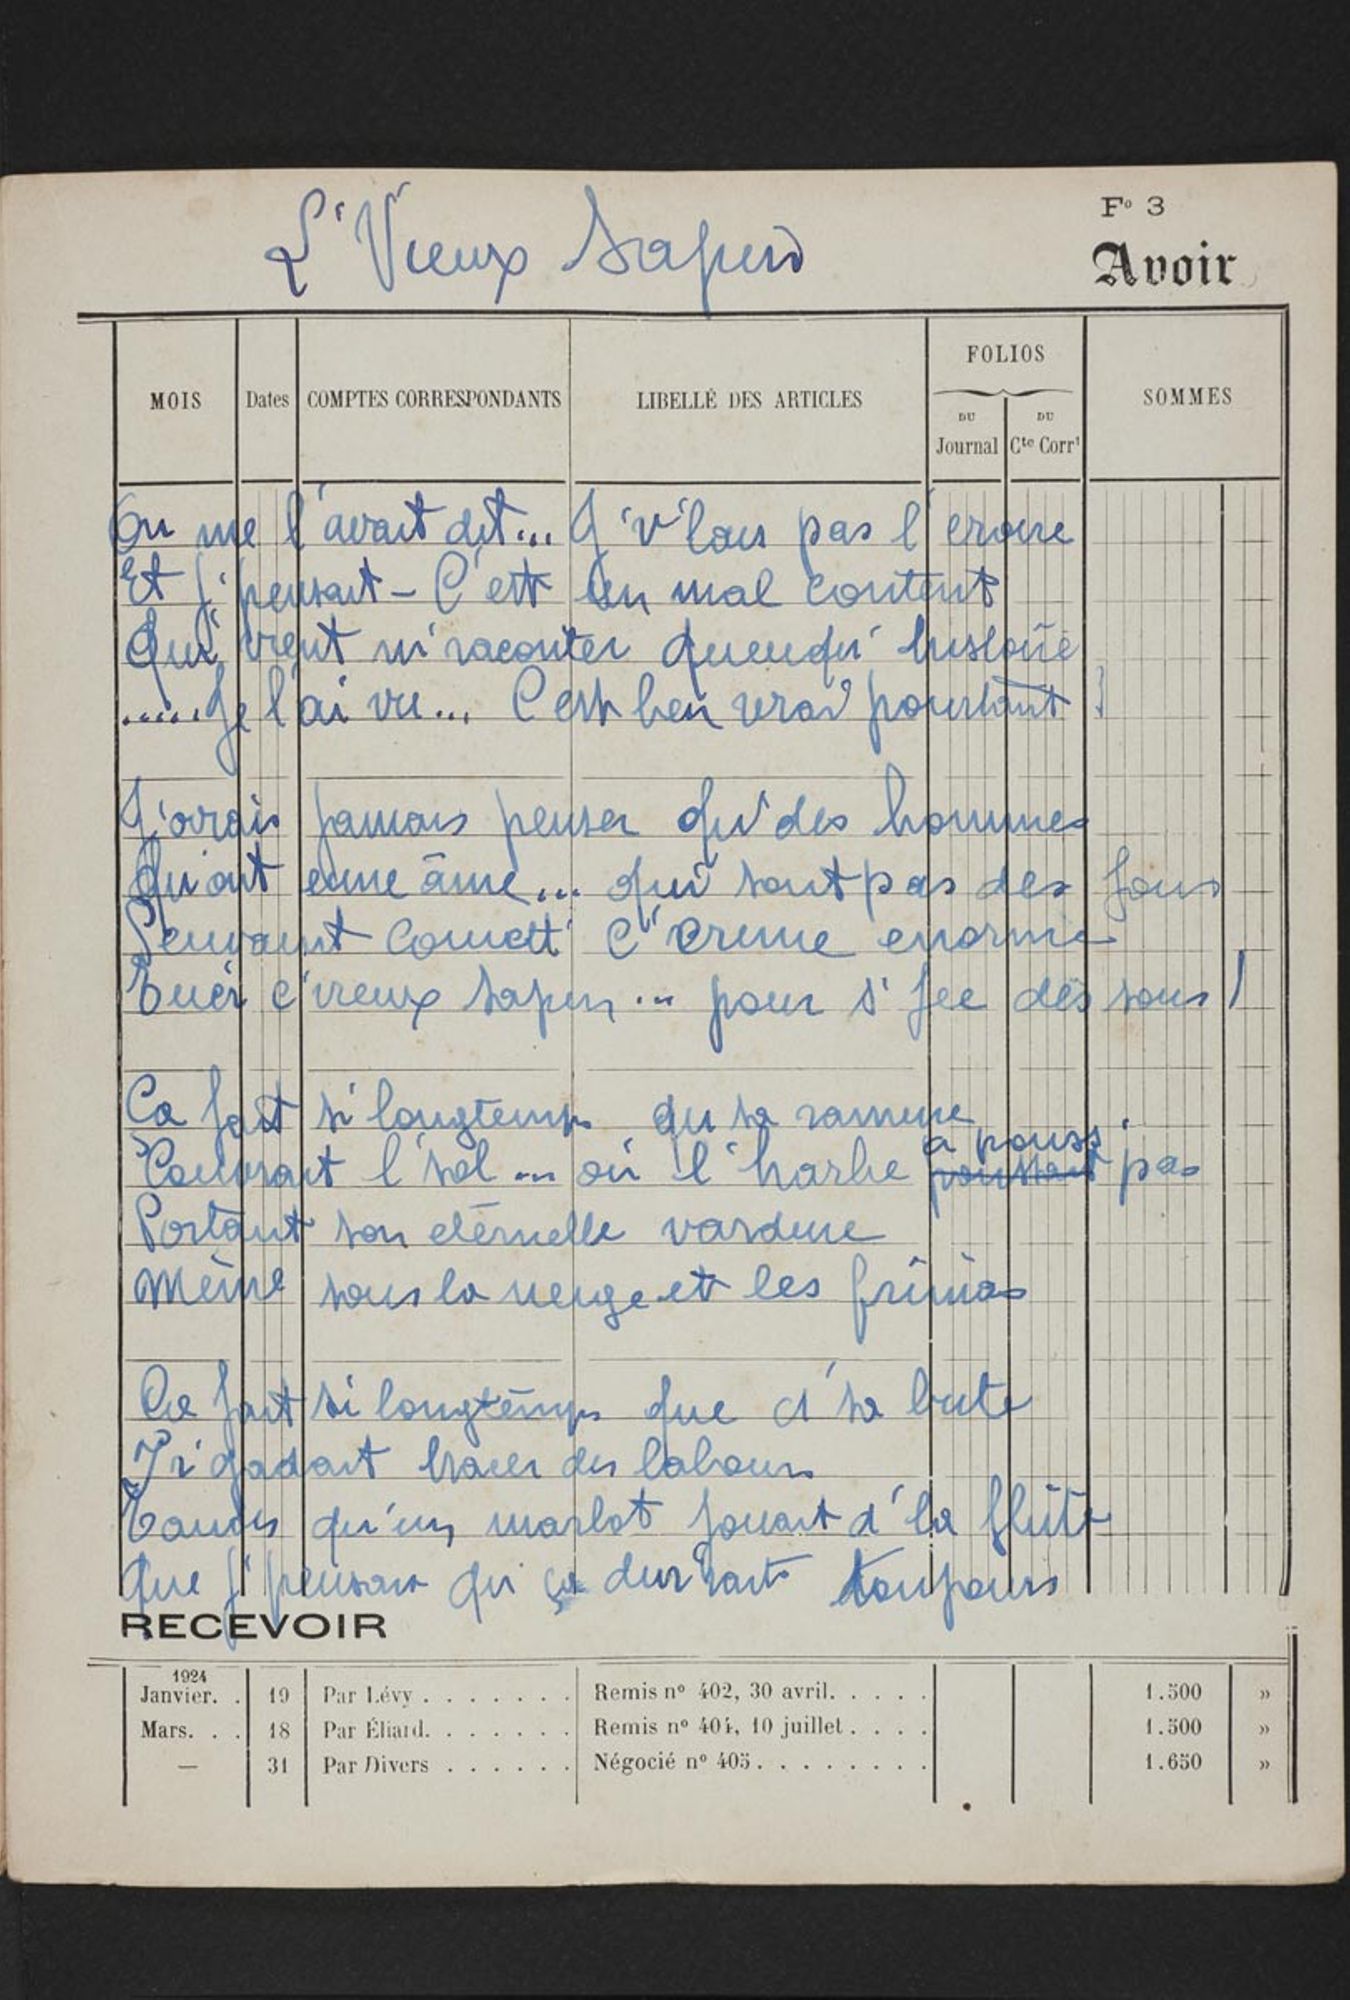 F° 3
L' Vieux Sapin
Avoir
MOIS
Dates
COMPTES CORRESPONDANTS
LIBELLÉ DES ARTICLES
FOLIOS
DU Journal
DU Cte Corrt
SOMMES
On me l'avait dit... J'v'lais pas l'croire
Et j'pensait - C'est un mal content
Qui vient m'raconter queuqu' histoire
.....Je l'ai vu... C'est ben vrai pourtant !
J'orais jamais penser qu'des hommes
Qu'ont eune âme... qui sont pas des fous
Peuvaint comett' c'crime enorme
Tuer c'vieux sapin... pour s'fee des sous !
Ca fait si longtemps qu' sa ramure
Couvrait l'sol... où l'harbe a pouss' poussait pas
Portant son éternelle vardure
Même sous la neige et les frimas
Ca fait si longtemps que d'sa bute
I r'gadait tracer des labours
Tandis qu'un marlot jouait d'la flûte
Que j'pensais qu' ça dur'rait toujours
RECEVOIR
1924
Janvier. . 19 Par Lévy . . . . . . . Remis n° 402, 30 avril. . . . . 1.500 »
Mars. . . 18 Par Éliard. . . . . . . Remis n° 404, 10 juillet . . . . 1.500 »
— 31 Par Divers . . . . . . Négocié n° 405. . . . . . . . 1.650 »